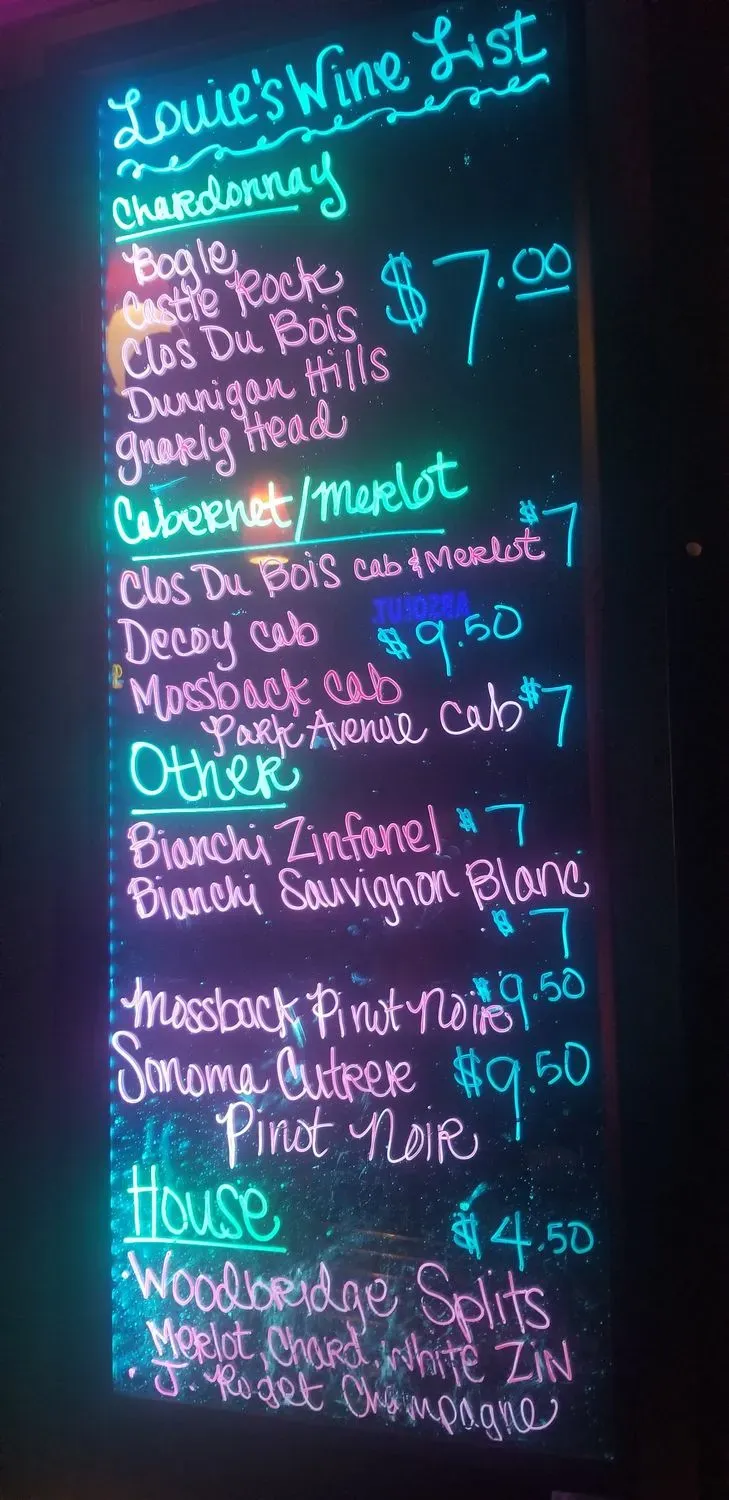 Louie's Wine List
Chardonnay
Bogle
Castle Rock
$7.00
Clos Du Bois
Dunnigan Hills
Gnarly Head
Cabernet/Merlot
Clos Du Bois cab & Merlot $7
ABSOLUT
Decoy cab $9.50
Mossback cab
Park Avenue Cab $7
Other
Bianchi Zinfanel $7
Bianchi Sauvignon Blanc
$7
Mossback Pinot Noir $9.50
Sonoma Cutrer $9.50
Pinot Noir
House $4.50
· Woodbridge Splits
Merlot, Chard, White Zin
· J. Roget Champagne